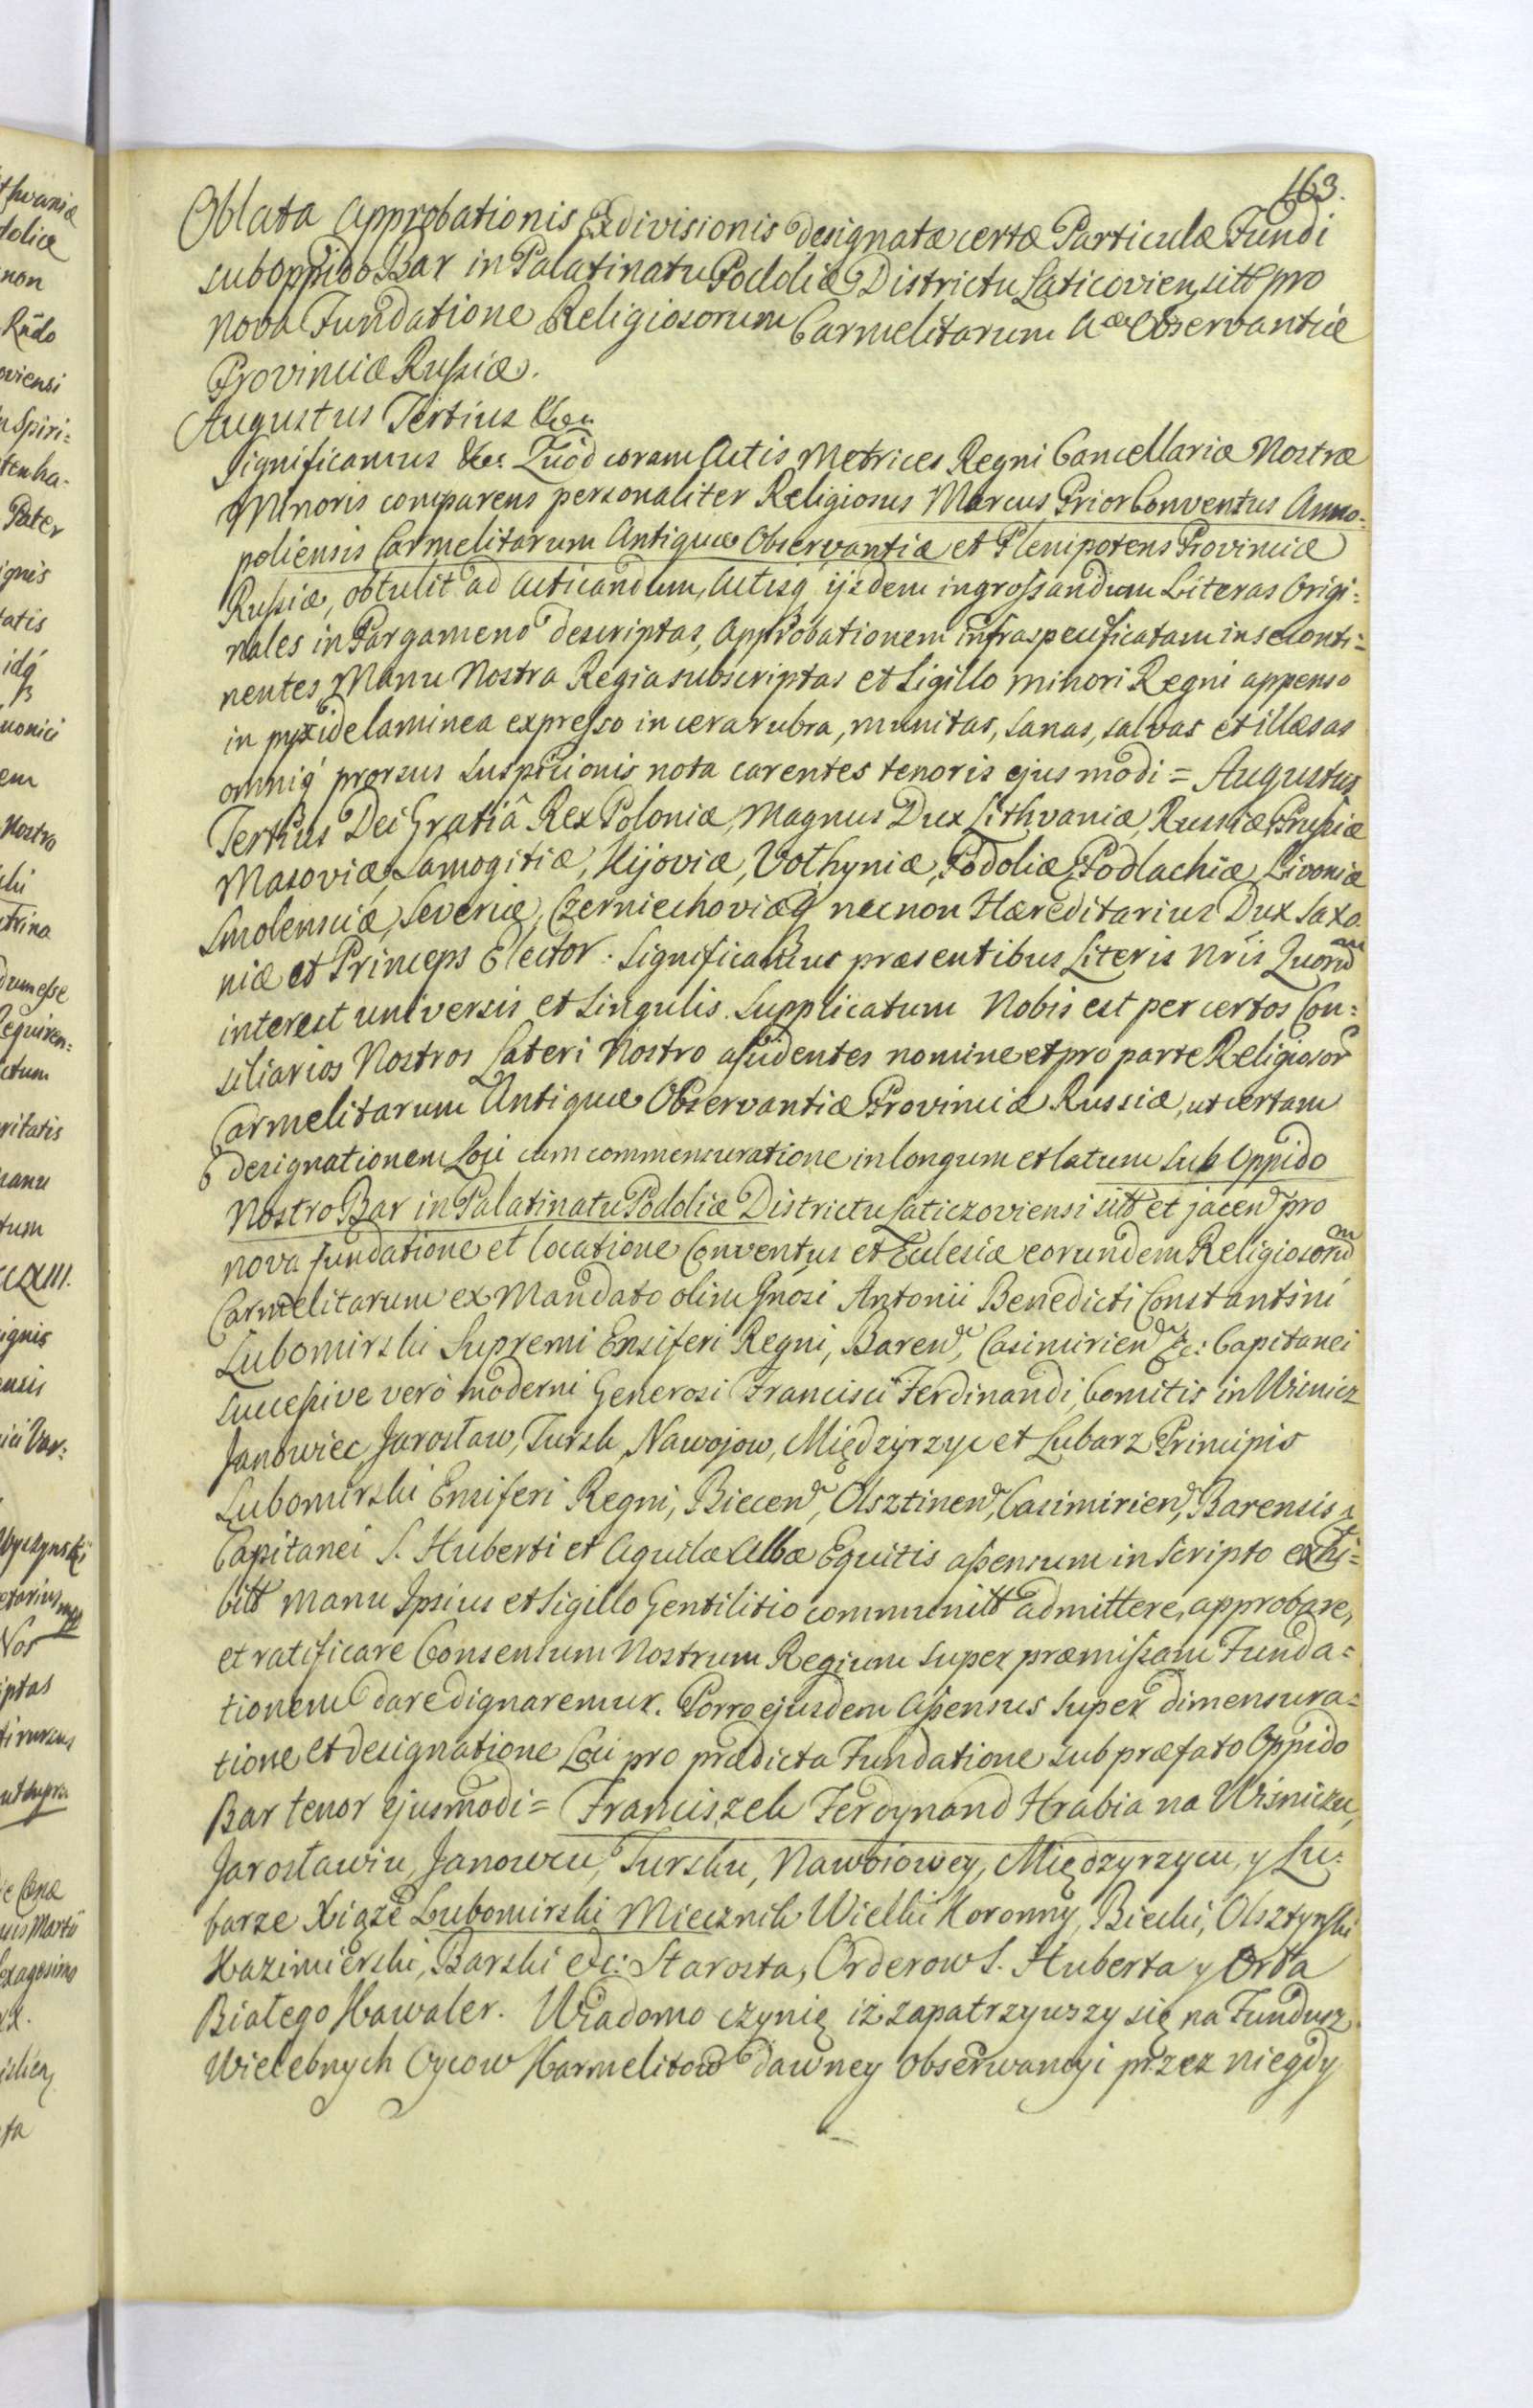 163.
Oblata Approbationis Exdivisionis designatæ certæ Particulæ Fundi
sub Oppido Bar in Palatinatu Podoliæ Districtu Laticovien, sitt pro
nova Fundatione Religiosorum Carmelitarum Aæ Observantiæ
Provinciæ Russiæ.
Augustus Tertius &c.
Significamus &c. Quod coram Actis Metrices Regni Cancellariæ Nostræ
Minoris comparens personaliter Religiosus Marcus Prior Conventus Anno-
poliensis Carmelitarum Antiquæ Observantiæ et Plenipotens Provinciæ
Russiæ, obtulit ad Acticandum, Actisq ijsdem ingrossandum Literas Origi-
nales in Pargameno descriptas, Approbationem infraspecificatam in se conti-
nentes Manu Nostra Regia subscriptas et Sigillo minori Regni appenso
in pyxide laminea expresso in cera rubra, munitas, sanas, salvas et illæsas
omniq prorsus suspicionis nota carentes tenoris ejusmodi = Augustus
Tertius Dei Gratiâ Rex Poloniæ, Magnus Dux Lithvaniæ, Russiæ, Prussiæ
Masoviæ, Samogitiæ, Kijoviæ, Volhyniæ, Podoliæ, Podlachiæ, Livoniæ
Smolensciæ, Severiæ, Czerniechoviæq necnon Hæreditarius Dux Saxo
niæ et Princeps Elector. Significamus præsentibus Literis Nris Quorum
interest universis et singulis. Supplicatum Nobis est per certos Con-
siliarios Nostros Lateri Nostro assidentes nomine et pro parte Religiosor
Carmelitarum Antiquæ Observantiæ Provinciæ Russiæ, ut certam
designationem Loci cum commensuratione in longum et latum sub Oppido
Nostro Bar in Palatinatu Podoliæ Districtu Laticzoviensi sitt et jacen pro
nova fundatione et locatione Conventus et Ecclesiæ eorundem Religiosorum
Carmelitarum ex Mandato olim Gnosi Antonii Benedicti Constantini
Lubomirski Supremi Ensiferi Regni, Baren, Casimirien &c: Capitanei
successive verò moderni Generosi Francisci Ferdinandi Comitis in Wisnicz
Janowiec, Jarosław, Tursk, Nawojow, Międzyrzyc et Lubarz Principis
Lubomirski Ensiferi Regni, Biecen, Olsztinen, Casimirien, Barensis
Capitanei S. Huberti et Aquilæ Albæ Equitis assensum in Scripto exhi-
bitt manu Ipsius et Sigillo Gentilitio communitt admittere, approbare,
et ratificare Consensum Nostrum Regium super præmissam Funda-
tionem dare dignaremur. Porro ejusdem Assensus super dimensura-
tione et designatione Loci pro prædicta Fundatione sub præfato Oppido
Bar tenor ejusmodi = Franciszek Ferdynand Hrabia na Wisniczu,
Jarosławiu, Janowcu, Tursku, Nawoiowey, Międzyrzycu, y Lu-
barze Xiąże Lubomirski Miecznik Wielki Koronny, Biecki, Olsztynski
Kazimierski, Barski &c: Starosta, Orderow S. Huberta y Orła
Białego Kawaler. Wiadomo czynię iż zapatrzywszy się na Fundusz
Wielebnych Oycow Karmelitow dawney obserwancyi przez niegdy